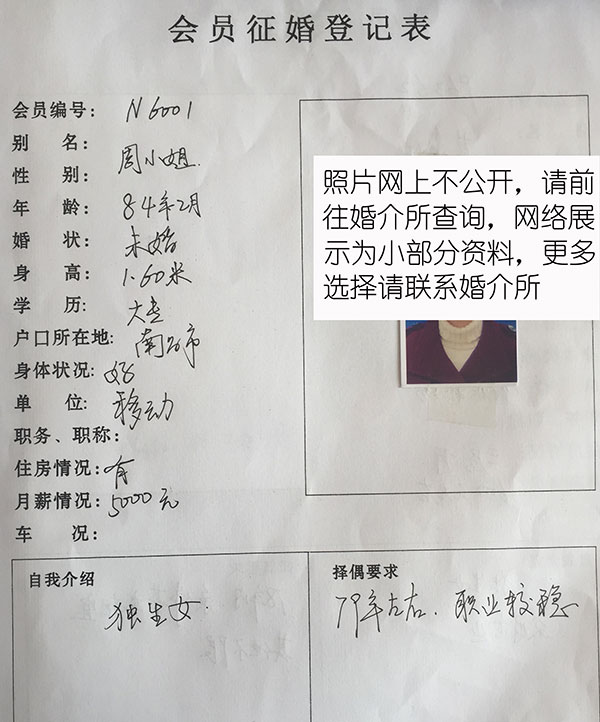 会员征婚登记表
会员编号: N6001
别 名:
性 别: 周小姐.
年 龄: 84年2月
婚 状: 未婚
身 高: 1.60米
学 历: 大专
户口所在地: 南昌市
身体状况: 好
单 位: 移动
职务、职称:
住房情况: 有
月薪情况: 5000元
车 况:
照片网上不公开，请前
往婚介所查询，网络展
示为小部分资料，更多
选择请联系婚介所
自我介绍
独生女.
择偶要求
79年左右. 职业较稳